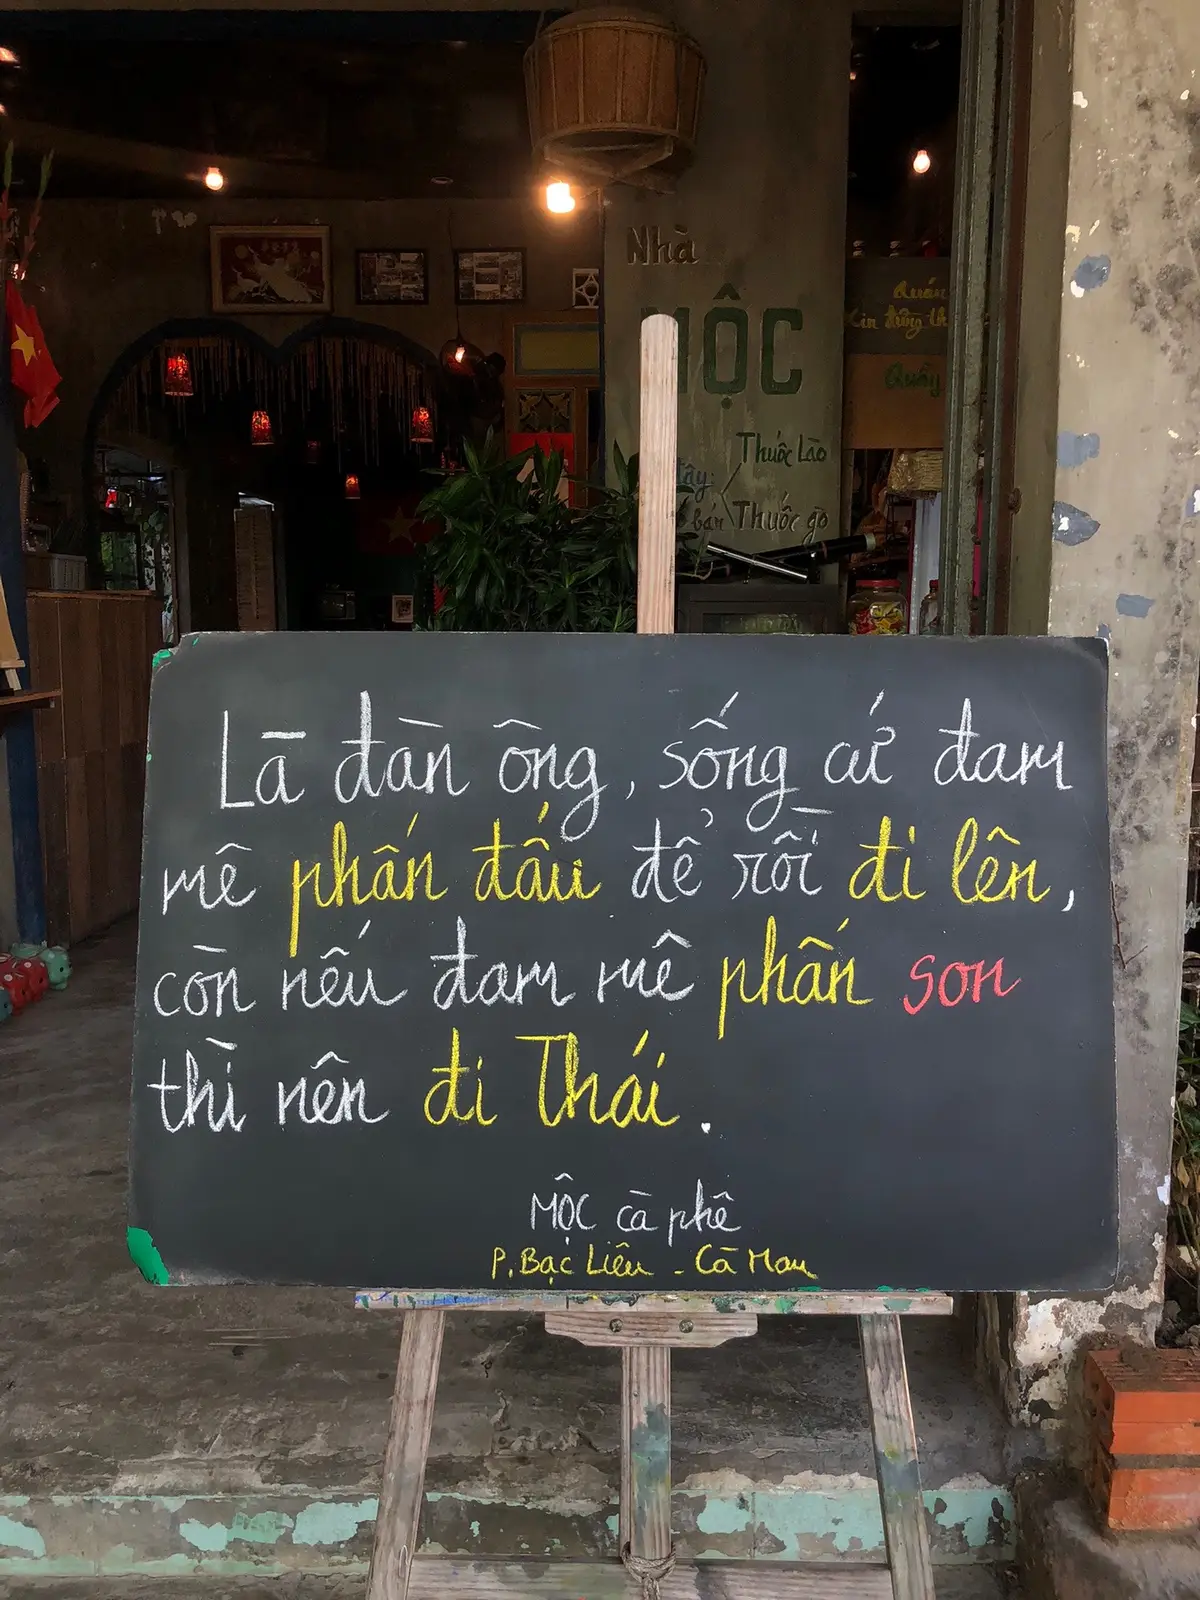 Nhà
MỘC
Quán
Xin đừng
Quầy
Thuốc Lào
đây:
bán Thuốc gò
Là đàn ông, sống cứ đam
mê phấn đấu để rồi đi lên,
còn nếu đam mê phấn son
thì nên đi Thái.
MỘC cà phê
P. Bạc Liêu - Cà Mau